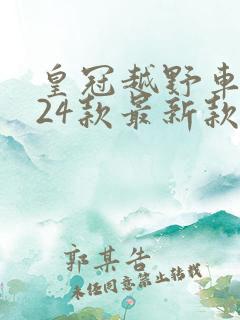 皇冠越野车
24款最新款
郭某告
未经同意禁止转载